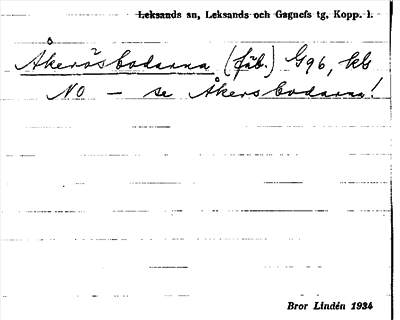 Leksands sn, Leksands och Gagnefs tg, Kopp. l.
Åkerösbodarna (fäb.) G96, kls
NO — se Åkersbodarna!
Bror Lindén 1934